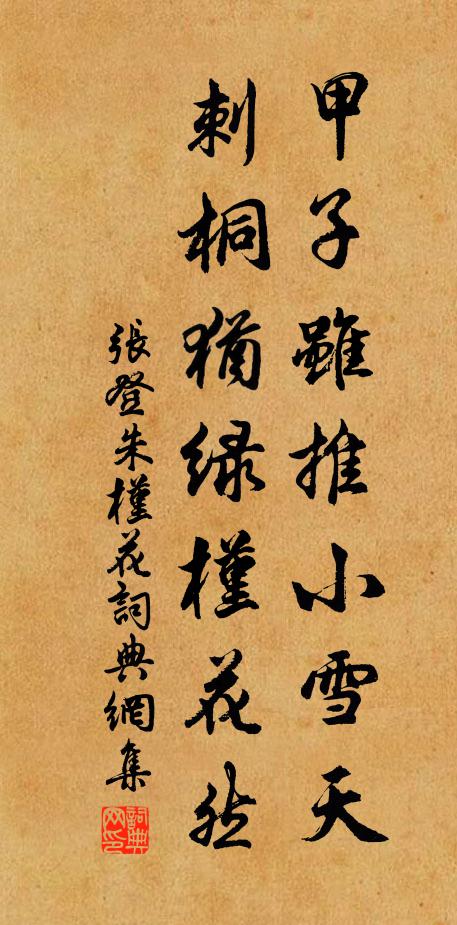 甲子雖推小雪天
刺桐猶綠槿花然
張登朱槿花詞典網集
詞典网印